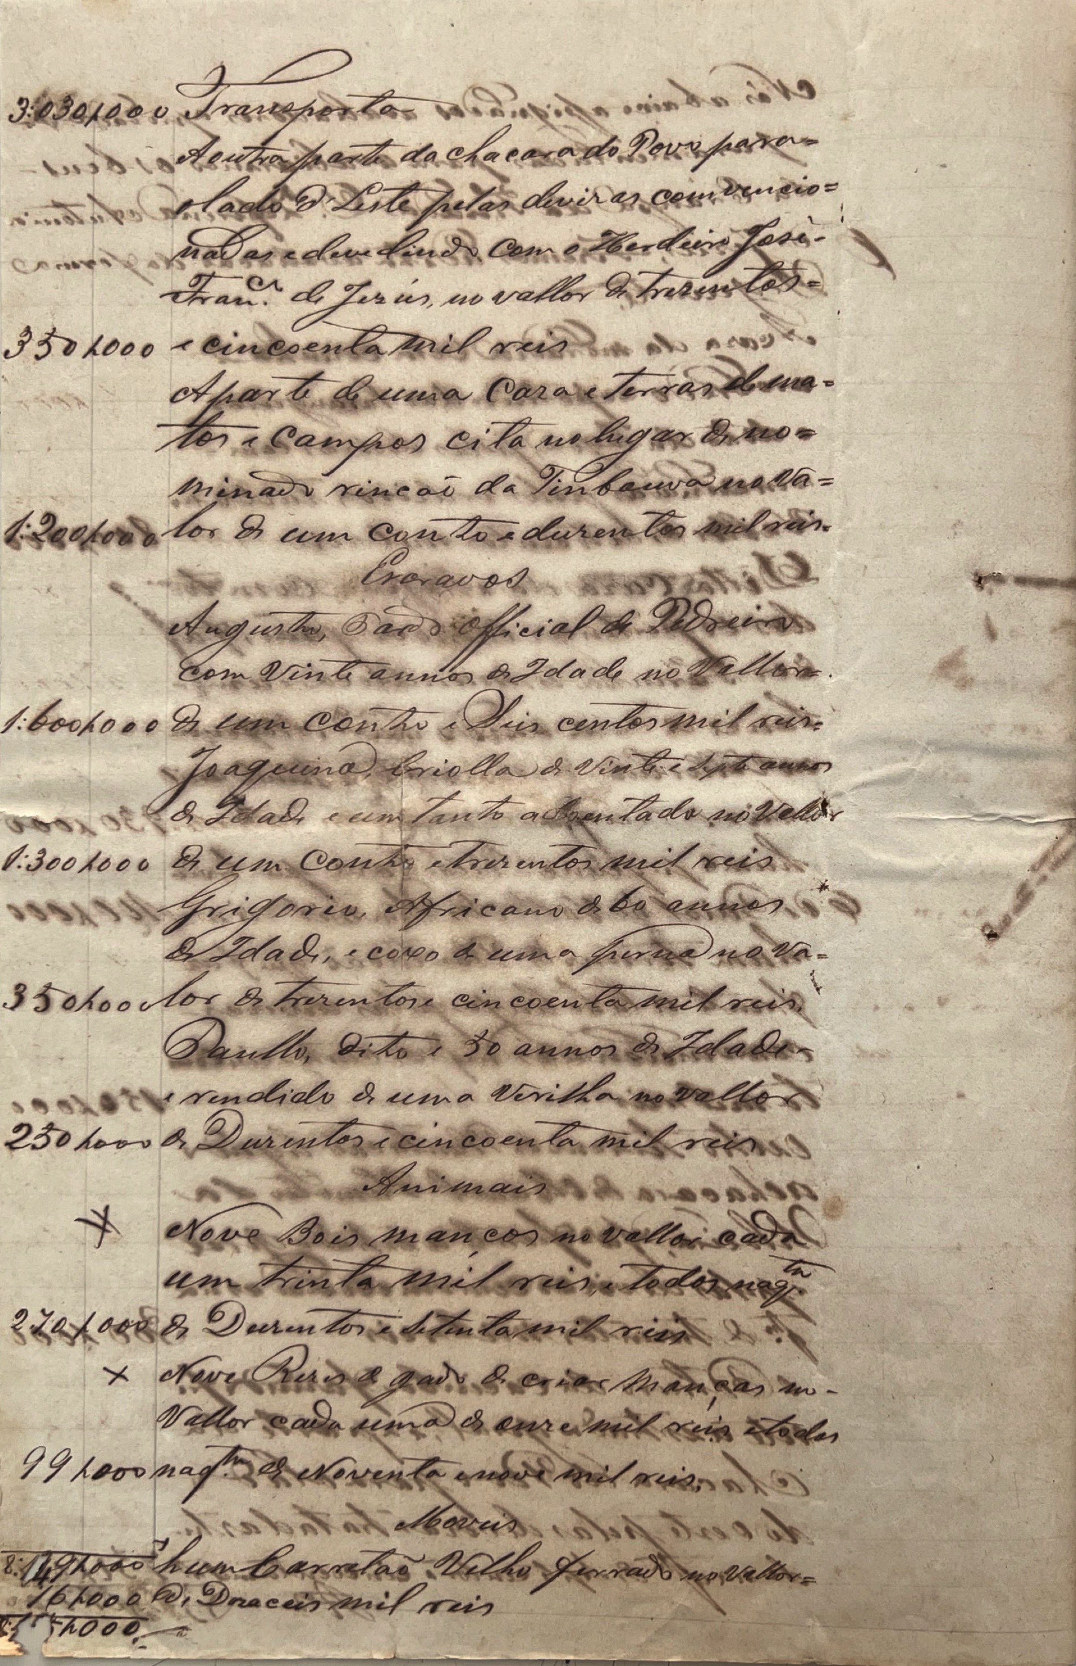 3:030$000 Transporta
A outra parte da chacara do Povo para=
o lado d'Leste pelas devizas comvencio=
nadas e devedindo com o Herdeiro José-
Fran.co de Jezús, no vallor de trezentos=
350$000 e cincoenta mil reis
A parte de uma Caza e terras de ma=
tos e Campos cita no lugar de no=
minado rincaõ da Tinbauva no Va=
1:200$000 lor de um conto e duzentos mil reis.
Escravos
Augusto, Pardo Official de Pedreiro
com Vinte annos de Idade no Vallor=
1:600$000 de um Conto e Seis centos mil reis=
Joaquina, Criolla de Vinte e sete annos
de Idade e um tanto adoentada no Vallor
1:300$000 de um Conto e trezentos mil reis
Grigorio, Africano de 60 annos
de Idade, e coxo de uma perna no Va=
350$000 lor de trezentos e cincoenta mil reis,
Paullo, dito e 50 annos de Idade
e rendido de uma Verilha no vallor
250$000 de Duzentos e cincoenta mil reis
Animais
X Nove Bois manços no vallor cada
um trinta mil reis, e todos na q.tia
270$000 de Duzentos e setenta mil reis
X Nove Rezes de gado de criar Mançàs no-
Vallor cada uma de onze mil reis e todas
99$000 na q.tia de Noventa e nove mil reis.
Moveis
8:449$000 hum Carretaõ Velho ferrado no Vallor=
16$000 de Dezaceis mil reis